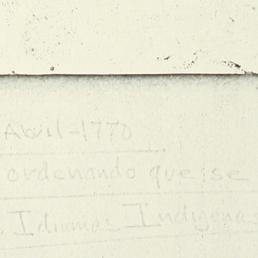 Abril-1770
ordenando que se
Idiomas Indigenas